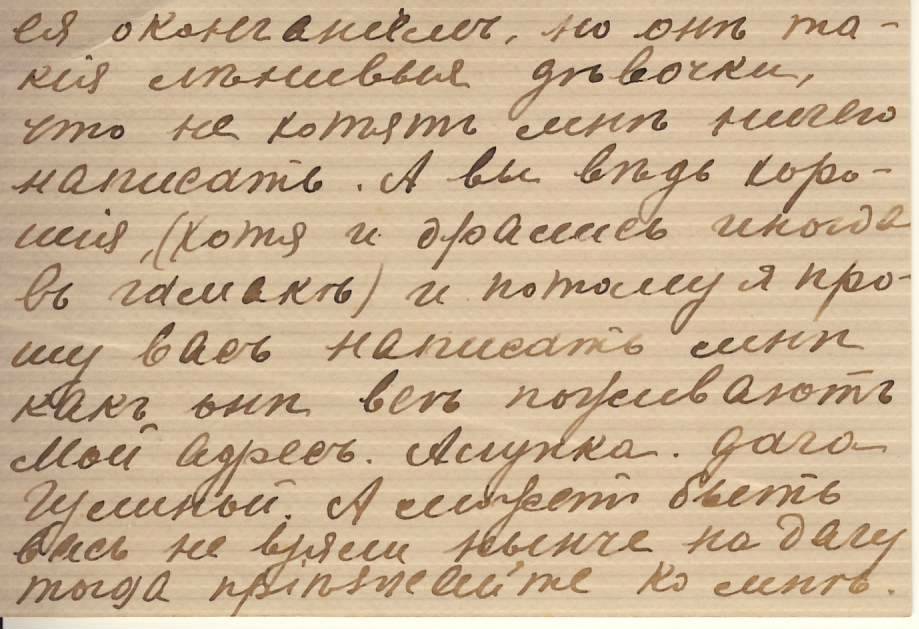 ея окончанiемъ, но онѣ та-
кiя лѣнивыя дѣвочки,
что не хотятъ мнѣ ничего
написать. А вы вѣдь хоро-
шiя, (хотя и дрались иногда
въ гамакѣ) и потому я про-
шу васъ написать мнѣ
какъ онѣ всѣ поживаютъ
Мой адресъ. Алупка. дача
А можетъ быть
васъ не взяли нынче на дачу
тогда прiѣзжайте ко мнѣ.